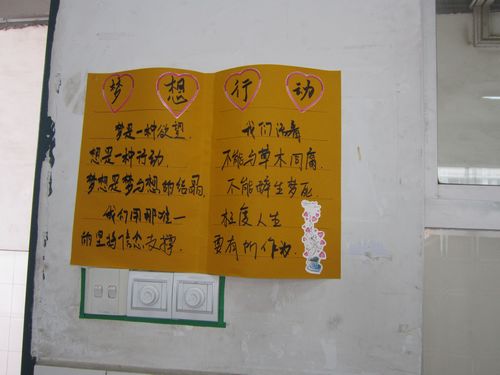 梦想
梦是一种欲望,
想是一种行动.
梦想是梦与想的结晶.
我们用那唯一
的坚持信念支撑.
行动
我们活着
不能与草木同腐,
不能醉生梦死,
人生
要有所作为.